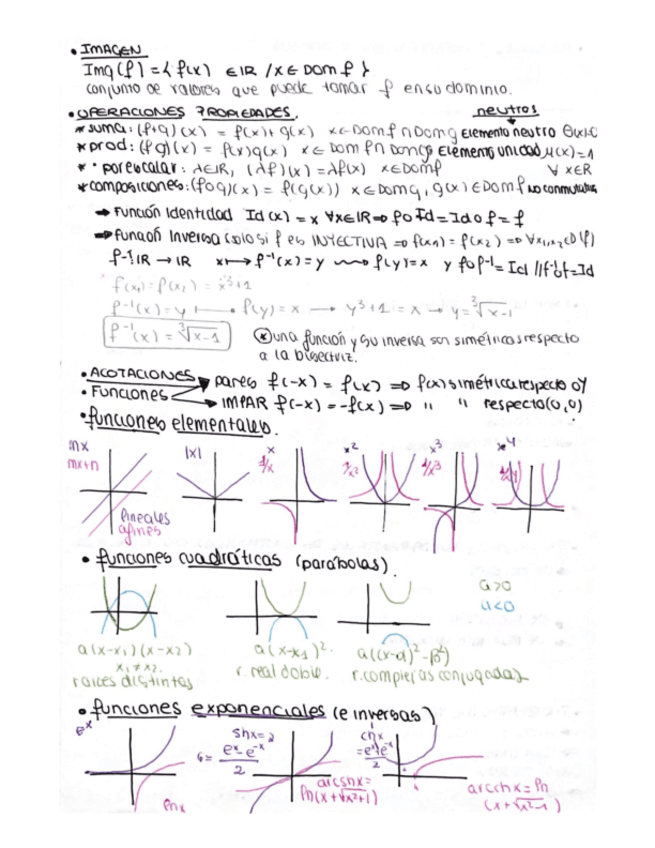 • IMAGEN
Img(f) = { f(x) ∈ IR / x ∈ Dom f }
conjunto de valores que puede tomar f en su dominio.
• OPERACIONES PROPIEDADES. neutros
* suma: (f+g)(x) = f(x)+g(x) x∈Domf∩Domg Elemento neutro Θ(x)=0
* prod: (fg)(x) = f(x)g(x) x∈Domf∩Domg Elemento unidad μ(x)=1
* · por escalar: λ∈IR, (λf)(x)=λf(x) x∈Domf ∀ x∈R
* composiciones: (fog)(x) = f(g(x)) x∈Domg, g(x)∈Domf no conmutativa
→ Función Identidad Id(x) = x ∀x∈IR ⇒ foId=Idof=f
⇒ función Inversa (solo si f es INYECTIVA ⇒ f(x1)=f(x2) ⇒ ∀x1,x2∈D(f)
f-1: IR → IR x ↦ f-1(x)=y f(y)=x y fof-1=Id // f-1of=Id
f(x1)=f(x2) = x3+1
f-1(x)=y ⟼ f(y)=x → y3+1=x → y=∛x-1
f-1(x)=∛x-1
* una función y su inversa son simétricas respecto
a la bisectriz.
• ACOTACIONES
• Funciones
pares f(-x) = f(x) ⇒ f(x) simétrica respecto OY
IMPAR f(-x) = -f(x) ⇒ " " respecto (0,0)
• funciones elementales.
mx
mx+n
lineales
afines
|x|
x
1/x
x2
1/x2
x3
1/x3
x4
1/x4
• funciones cuadráticas (parábolas).
a>0
a<0
a(x-x1)(x-x2)
x1≠x2.
raíces distintas
a(x-x1)2.
r. real doble.
a((x-α)2-β2)
r. complejas conjugadas
• funciones exponenciales (e inversas)
ex
lnx
shx=
ex-e-x
2
arcshx=
ln(x+√x2+1)
chx
=ex+e-x
2
arcchx=ln
(x+√x2-1)